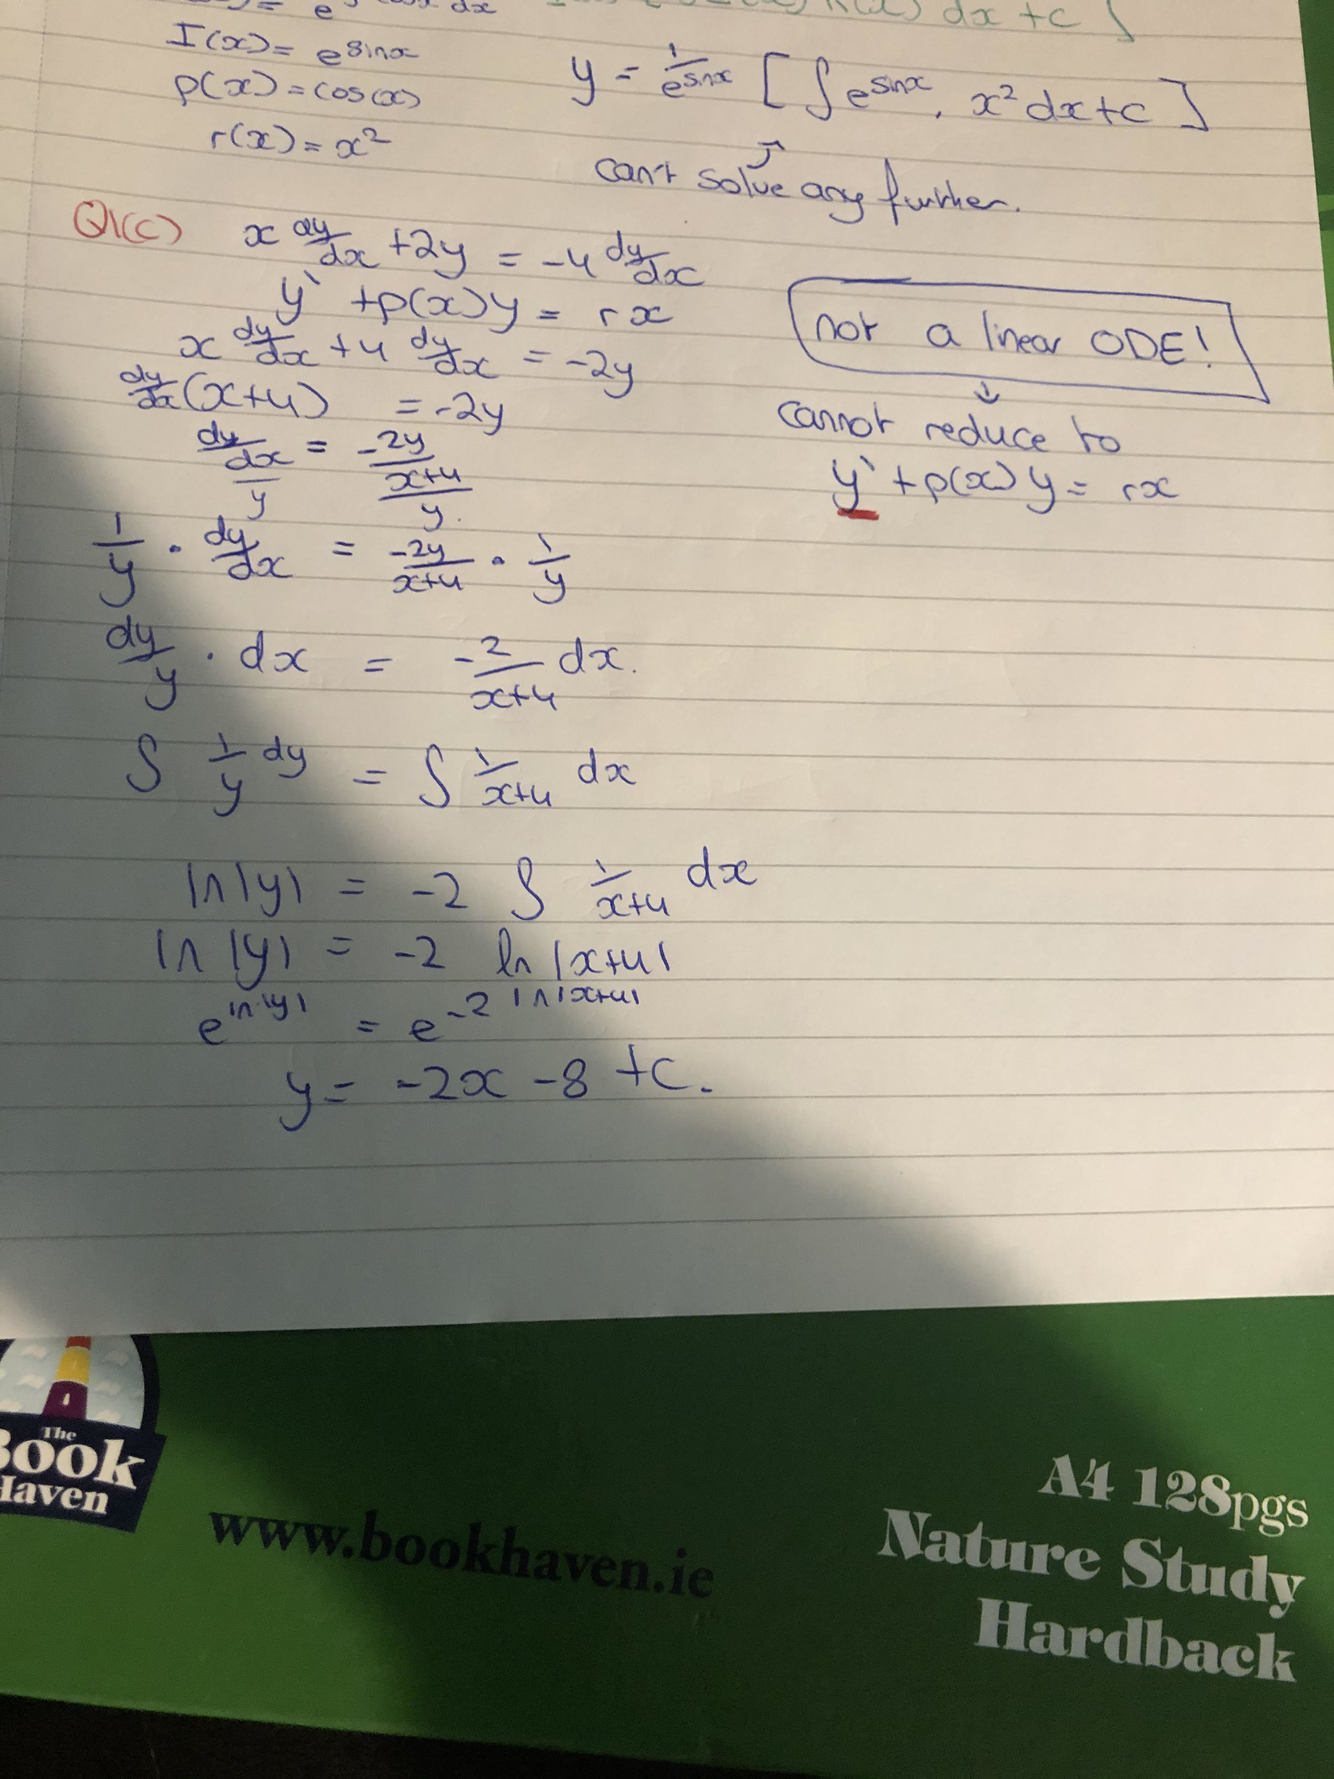 dx
dx + c ]
I(x) = e^sinx
p(x) = cos(x)
r(x) = x²
y = 1/e^sinx [ ∫ e^sinx . x² dx + c ]
can't solve any further.
Q1(c) x dy/dx + 2y = -4 dy/dx
y' + p(x)y = rx
x dy/dx + 4 dy/dx = -2y
dy/dx (x+4) = -2y
dy/dx / y = -2y/x+4 / y
1/y . dy/dx = -2y/x+4 . 1/y
dy/y . dx = -2/x+4 dx.
∫ 1/y dy = ∫ 1/x+4 dx
ln|y| = -2 ∫ 1/x+4 dx
ln|y| = -2 ln|x+4|
e^ln|y| = e^-2 ln|x+4|
y = -2x - 8 + c.
not a linear ODE!
cannot reduce to
y' + p(x) y = rx
The
Book
Haven
www.bookhaven.ie
A4 128pgs
Nature Study
Hardback